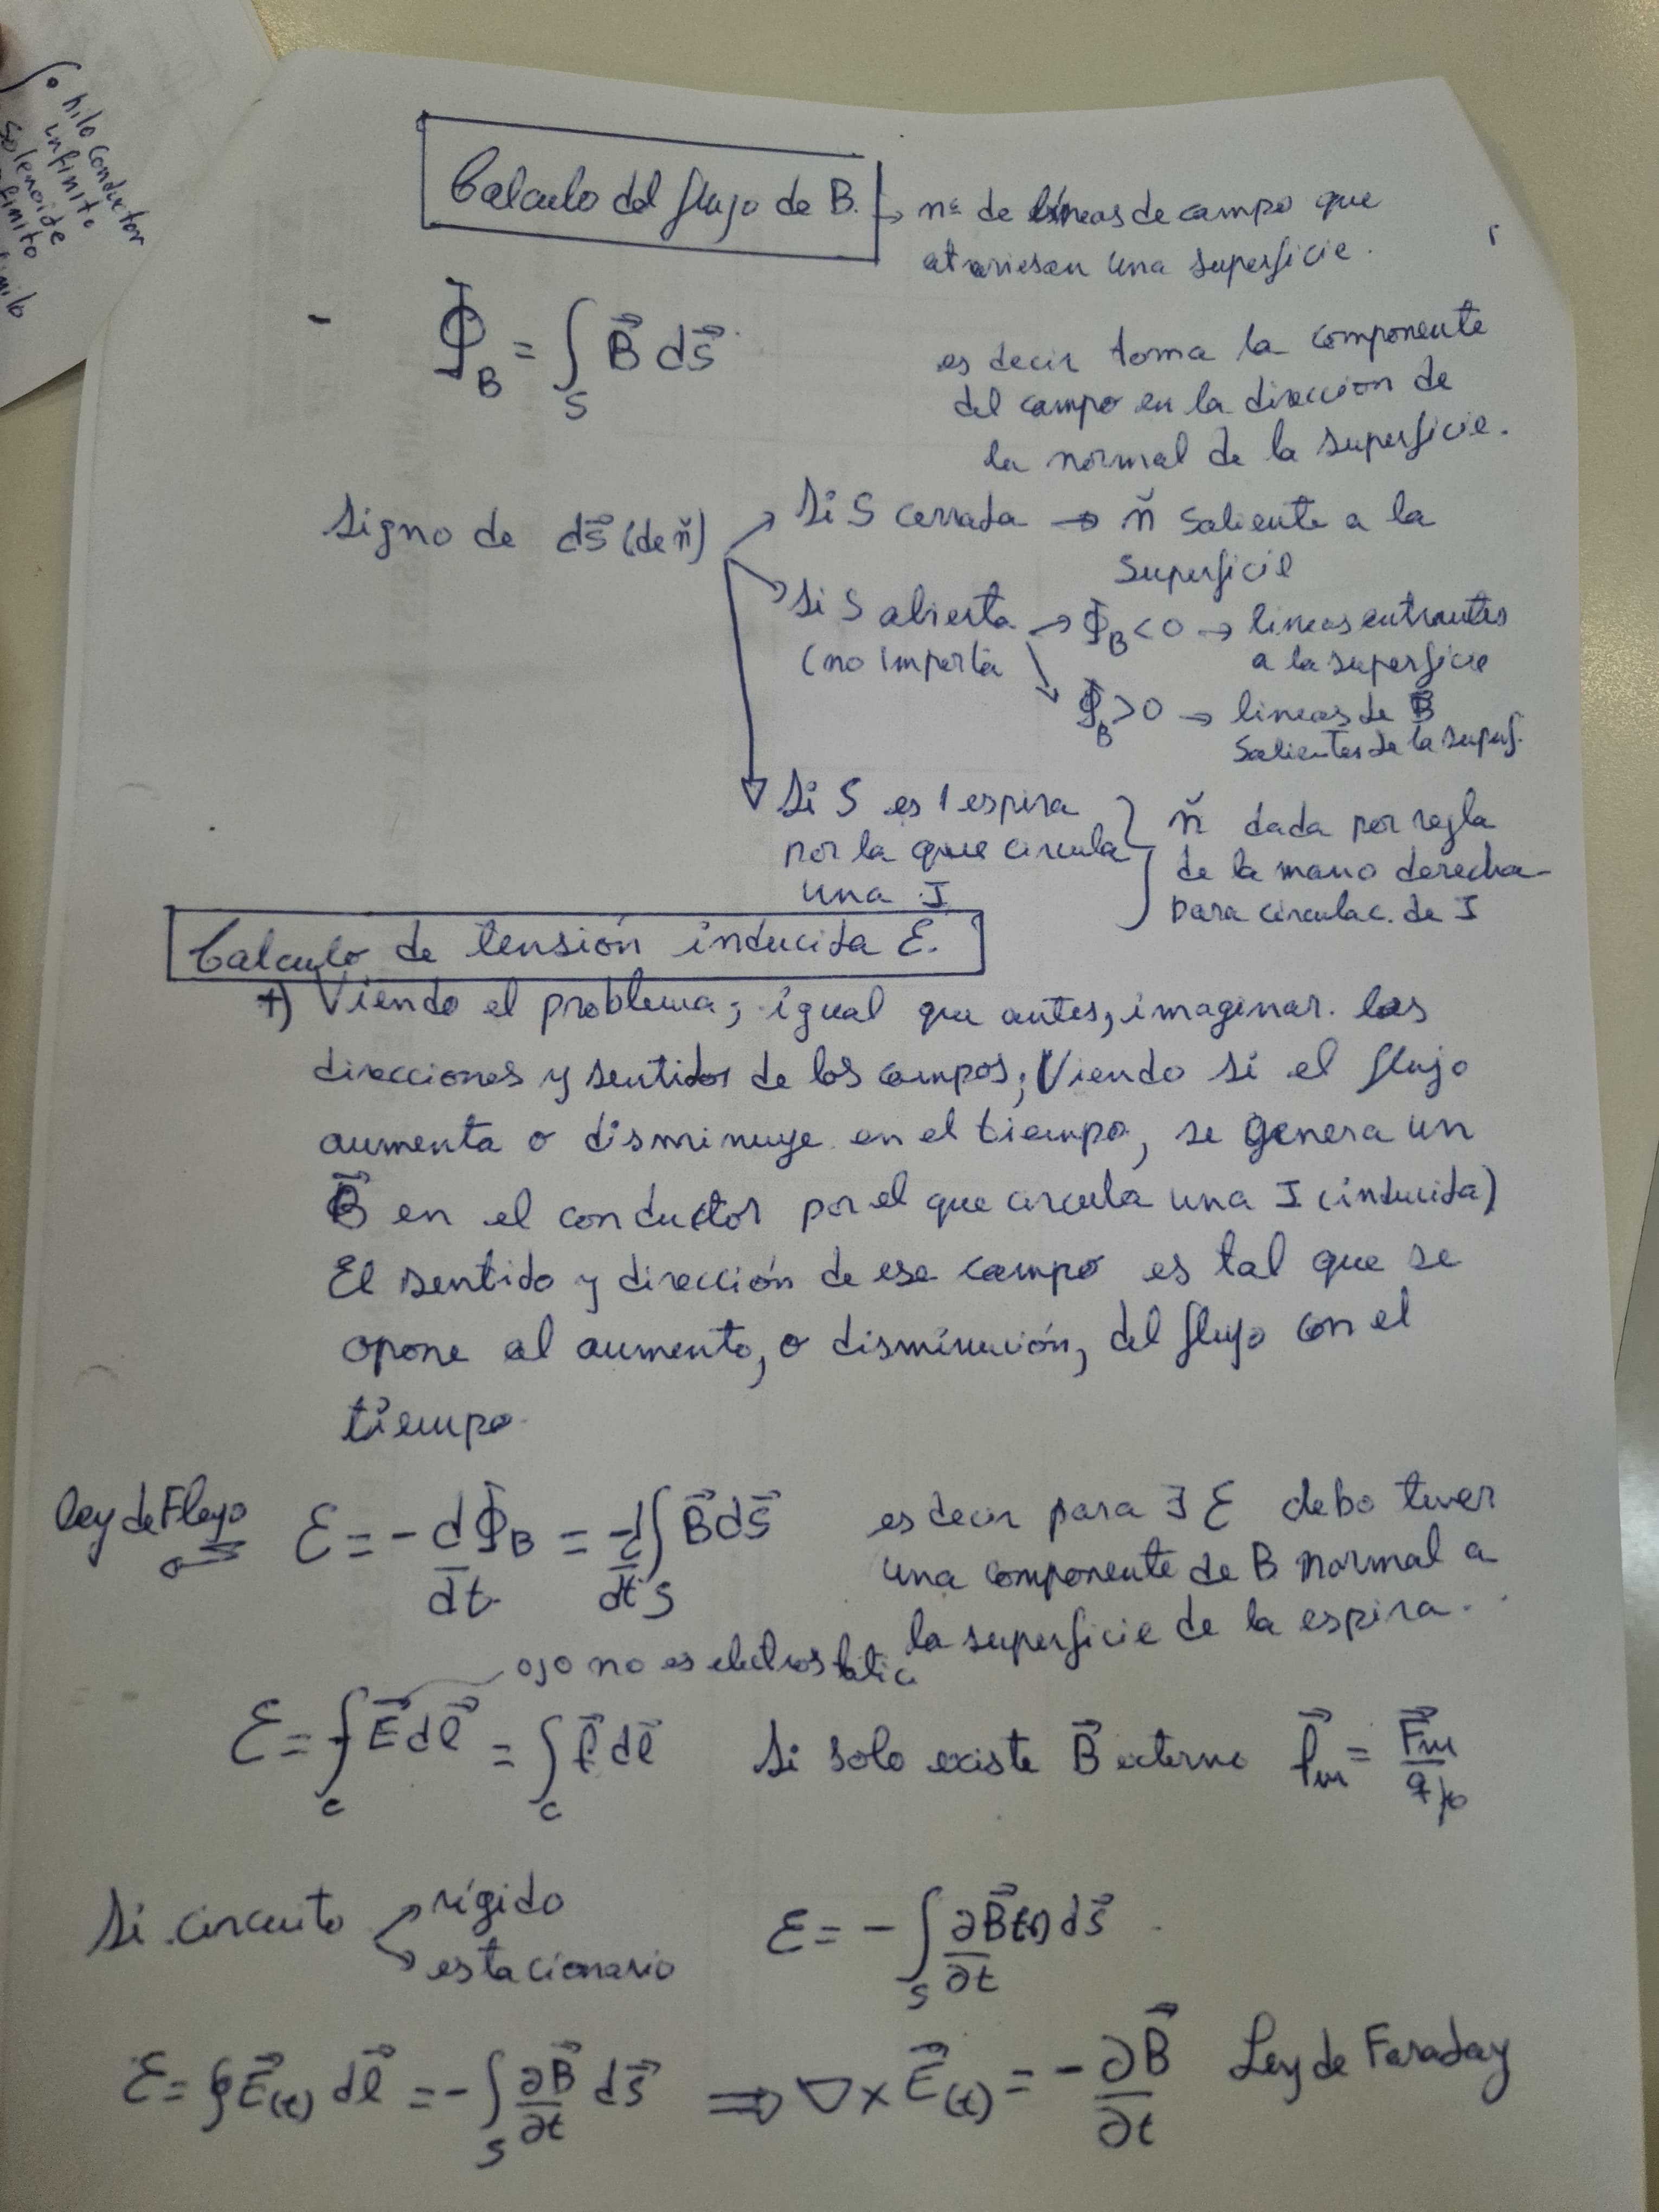 hilo conductor
infinito
solenoide
Calculo del flujo de B. → nº de líneas de campo que
atraviesan una superficie.
- Φ_B = ∫_S B⃗ ds⃗
es decir toma la componente
del campo en la dirección de
la normal de la superficie.
Signo de ds⃗ (de ň)
Si S cerrada → ň saliente a la
superficie
Si S abierta → Φ_B < 0 → lineas entrantes
(no importa
a la superficie
Φ_B > 0 → lineas de B⃗
salientes de la superf.
Si S es 1 espira
por la que circula
una I
ň dada por regla
de la mano derecha
para circulac. de I
Calculo de tensión inducida Ɛ.
+) Viendo el problema; igual que antes, imaginar las
direcciones y sentidos de los campos; Viendo si el flujo
aumenta o disminuye en el tiempo, se genera un
B⃗ en el conductor por el que circula una I (inducida)
El sentido y dirección de ese campo es tal que se
opone al aumento, o disminución, del flujo con el
tiempo.
Ley de Flujo Ɛ = - dΦ_B/dt = -d/dt ∫_S B⃗ ds⃗
es decir para ∃ Ɛ debo tener
una componente de B normal a
la superficie de la espira.
ojo no es electrostatic
Ɛ = ∫_c E⃗ dl⃗ = ∫_c f⃗ dl⃗ Si solo existe B⃗ externo f⃗m = F⃗m/q
Si circuito
rígido
estacionario
Ɛ = - ∫_S ∂B⃗(t)/∂t ds⃗
Ɛ = ∮ E⃗(t) dl⃗ = - ∫_S ∂B⃗/∂t ds⃗ ⇒ ∇ × E⃗(t) = - ∂B⃗/∂t Ley de Faraday